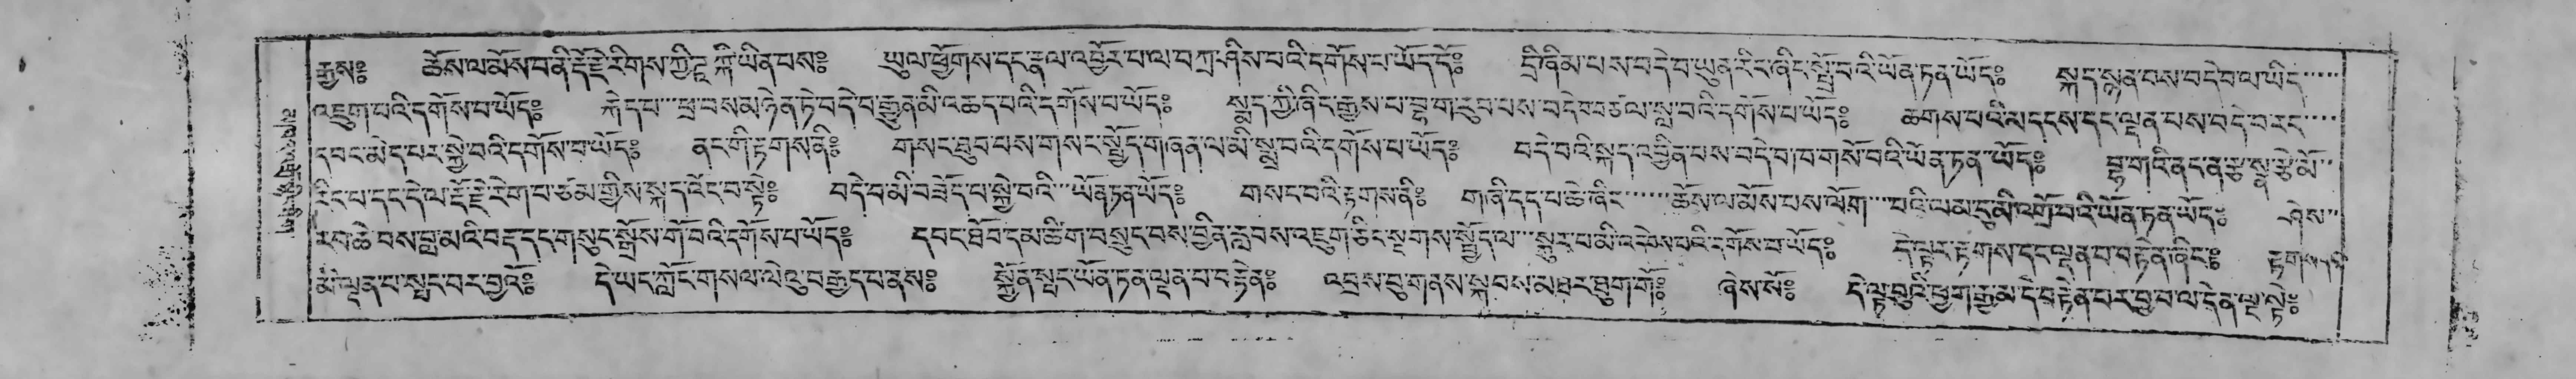 རྒྱས༔ ཆོས་ལ་མོས་པ་ནི་རྡོ་རྗེ་རིགས་ཀྱི་ཌཱ་ཀི་ཡིན་པས༔ ཡུལ་ཕྱོགས་དང་རྣལ་འབྱོར་པ་ལ་བཀྲ་ཤིས་པའི་དགོས་པ་ཡོད་དོ༔ དྲི་ཞིམ་པས་བདེ་བ་ཡུན་རིང་ཞིང་སྤྲོ་བའི་ཡོན་ཏན་ཡོད༔ སྐད་སྙན་པས་བདེ་བ་ལ་ཡིད་
འཇུག་པའི་དགོས་པ་ཡོད༔ རྐེད་པ་ཕྲ་བས་མཉེན་ཏེ་བདེ་བ་རྒྱུན་མི་འཆད་པའི་དགོས་པ་ཡོད༔ སྨད་ཀྱི་ཞིང་རྒྱས་པ་བྷ་ག་རུབ་པས་བདེ་བ་འཙལ་སླ་བའི་དགོས་པ་ཡོད༔ ཆགས་པའི་མདངས་དང་ལྡན་པས་བདེ་བ་རང་
དབང་མེད་པར་སྐྱེ་བའི་དགོས་པ་ཡོད༔ ནང་གི་རྟགས་ནི༔ གསང་ཐུབ་པས་གསང་སྤྱོད་གཞན་ལ་མི་སྨྲ་བའི་དགོས་པ་ཡོད༔ བདེ་བའི་སྐད་འབྱིན་པས་བདེ་བ་ཁ་གསོ་བའི་ཡོན་ཏན་ཡོད༔ བྷ་གའི་ནང་ན་རྩ་སྣ་རྩེ་མོ་
རིང་པ་དང་དེ་ལ་རྡོ་རྗེ་རེག་པ་ཙམ་གྱིས་སྐད་འོང་བ་སྟེ༔ བདེ་བ་མི་བཟོད་པ་སྐྱེ་བའི་ཡོན་ཏན་ཡོད༔ གསང་བའི་རྟགས་ནི༔ གཞི་དད་པ་ཆེ་ཞིང་ཆོས་ལ་མོས་པས་ལོག་པའི་ལམ་དུ་མི་འགྲོ་བའི་ཡོན་ཏན་ཡོད༔ ཤེས་
རབ་ཆེ་བས་བླ་མའི་བརྡ་དང་གསུང་སྒྲོས་གོ་བའི་དགོས་པ་ཡོད༔ དབང་ཐོབ་དམ་ཚིག་བསྲུང་བས་བྱིན་རླབས་འཇུག་ཅིང་སྔགས་སྤྱོད་ལ་སྐུར་པ་མི་འདེབས་པའི་དགོས་པ་ཡོད༔ དེ་ལྟར་རྟགས་དང་ལྡན་པ་བརྟེན་ཞིང༔ རྟགས་དང་
མི་ལྡན་པ་སྤང་བར་བྱའོ༔ དེ་ཡང་ཀློང་གསལ་ལེའུ་བརྒྱད་པ་ནས༔ སྐྱོན་སྤང་ཡོན་ཏན་ལྡན་པ་བརྟེན༔ འབྲས་བུ་གནས་སྐབས་མཐར་ཐུག་གོ༔ ཞེས་སོ༔ དེ་ལྟ་བུའི་ཕྱག་རྒྱ་མ་དེ་བརྟེན་པར་བྱ་བ་ལ་དོན་ལྔ་སྟེ༔